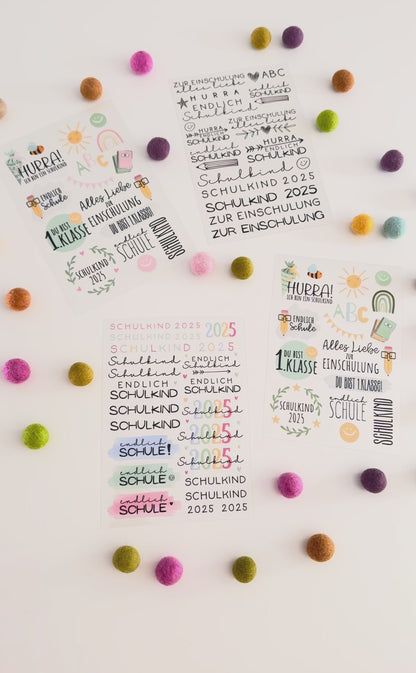 HURRA!
ICH BIN EIN SCHULKIND
ABC
ENDLICH
Schule
Alles Liebe
ZUR
EINSCHULUNG
1. DU BIST
KLASSE
DU BIST 1.KLASSE!
SCHULKIND
2025
endlich
SCHULE
SCHULKIND
ZUR EINSCHULUNG
alles liebe
ABC
HURRA
ENDLICH
Schulkind
ZUR EINSCHULUNG
alles liebe
HURRA
ENDLICH
Schulkind
HURRA
ENDLICH
endlich
SCHULKIND
endlich
SCHULKIND
Schulkind
SCHULKIND 2025
SCHULKIND 2025
ZUR EINSCHULUNG
ZUR EINSCHULUNG
HURRA!
ICH BIN EIN SCHULKIND
ABC
ENDLICH
Schule
Alles Liebe
ZUR
EINSCHULUNG
1. DU BIST
KLASSE
DU BIST 1.KLASSE!
SCHULKIND
2025
endlich
SCHULE
SCHULKIND
SCHULKIND 2025
SCHULKIND 2025
SCHULKIND 2025
2025
Schulkind
Schulkind
ENDLICH
SCHULKIND
SCHULKIND
SCHULKIND
ENDLICH
Schulkind
ENDLICH
SCHULKIND
2025
Schulkind
2025
Schulkind
2025
Schulkind
endlich
SCHULE!
endlich
SCHULE
endlich
SCHULE
SCHULKIND
SCHULKIND
2025 2025